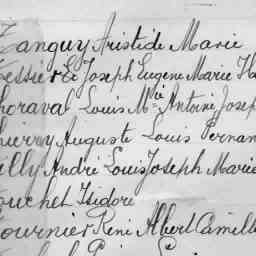 Tanguy Aristide Marie
Tessier Eé Joseph Eugene Marie
Thoraval Louis Mie Antoine Josep
Thierry Auguste Louis Fernan
Tilly André Louis Joseph Marie
Touchet Isidore
Tournier René Albert Camille